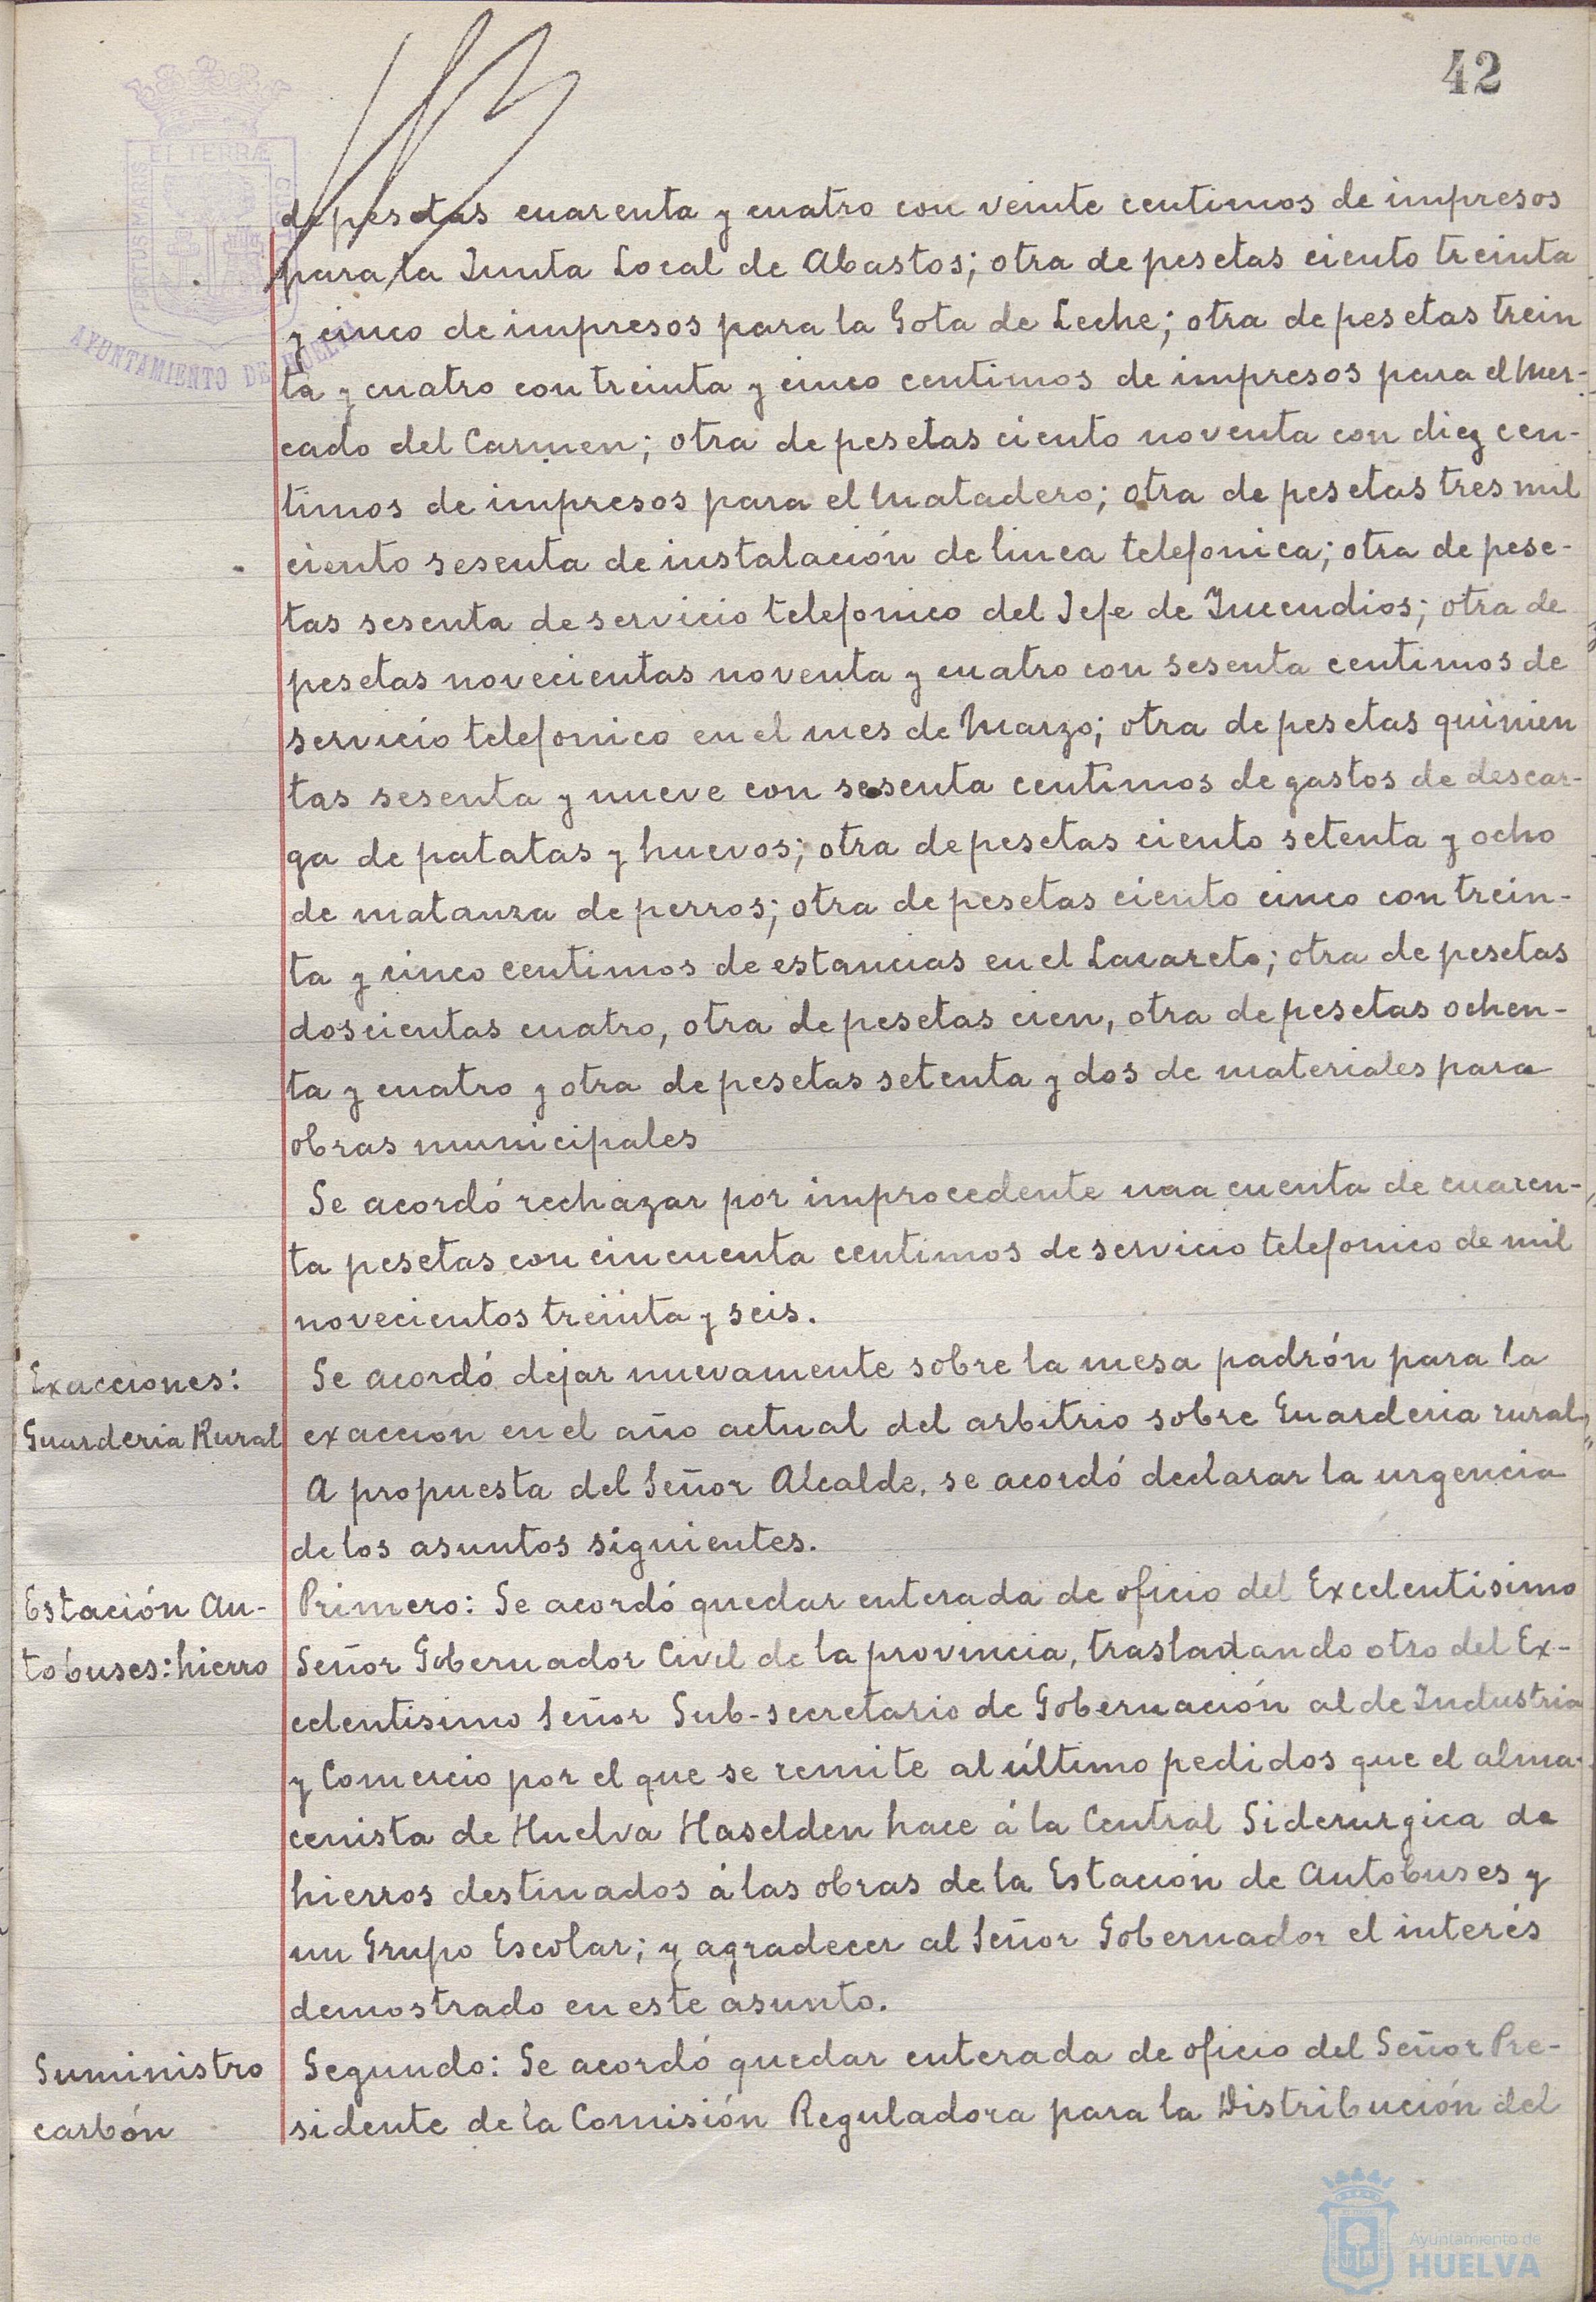 42
de pesetas cuarenta y cuatro con veinte centimos de impresos
para la Junta Local de Abastos; otra de pesetas ciento treinta
y cinco de impresos para la Gota de Leche; otra de pesetas trein
ta y cuatro con treinta y cinco centimos de impresos para el Mer-
cado del Carmen; otra de pesetas ciento noventa con diez cen-
timos de impresos para el Matadero; otra de pesetas tres mil
ciento sesenta de instalación de linea telefonica; otra de pese-
tas sesenta de servicio telefonico del Jefe de Incendios; otra de
pesetas novecientas noventa y cuatro con sesenta centimos de
servicio telefonico en el mes de Marzo; otra de pesetas quinien
tas sesenta y nueve con sesenta centimos de gastos de descar-
ga de patatas y huevos; otra de pesetas ciento setenta y ocho
de matanza de perros; otra de pesetas ciento cinco con trein-
ta y cinco centimos de estancias en el Lazareto; otra de pesetas
doscientas cuatro, otra de pesetas cien, otra de pesetas ochen-
ta y cuatro y otra de pesetas setenta y dos de materiales para
obras municipales
Se acordó rechazar por improcedente una cuenta de cuaren-
ta pesetas con cincuenta centimos de servicio telefonico de mil
novecientos treinta y seis.
Exacciones:
Guarderia Rural
Se acordó dejar nuevamente sobre la mesa padrón para la
exacción en el año actual del arbitrio sobre Guarderia rural
A propuesta del Señor Alcalde, se acordó declarar la urgencia
de los asuntos siguientes.
Estación Au-
tobuses: hierro
Primero: Se acordó quedar enterada de oficio del Excelentisimo
Señor Gobernador Civil de la provincia, trasladando otro del Ex-
celentisimo Señor Sub-secretario de Gobernación al de Industria
y Comercio por el que se remite al último pedidos que el alma-
cenista de Huelva Haselden hace á la Central Siderurgica de
hierros destinados á las obras de la Estación de Autobuses y
un Grupo Escolar; y agradecer al Señor Gobernador el interés
demostrado en este asunto.
Suministro
carbón
Segundo: Se acordó quedar enterada de oficio del Señor Pre-
sidente de la Comisión Reguladora para la Distribución del
AYUNTAMIENTO DE HUELVA
Ayuntamiento de
HUELVA